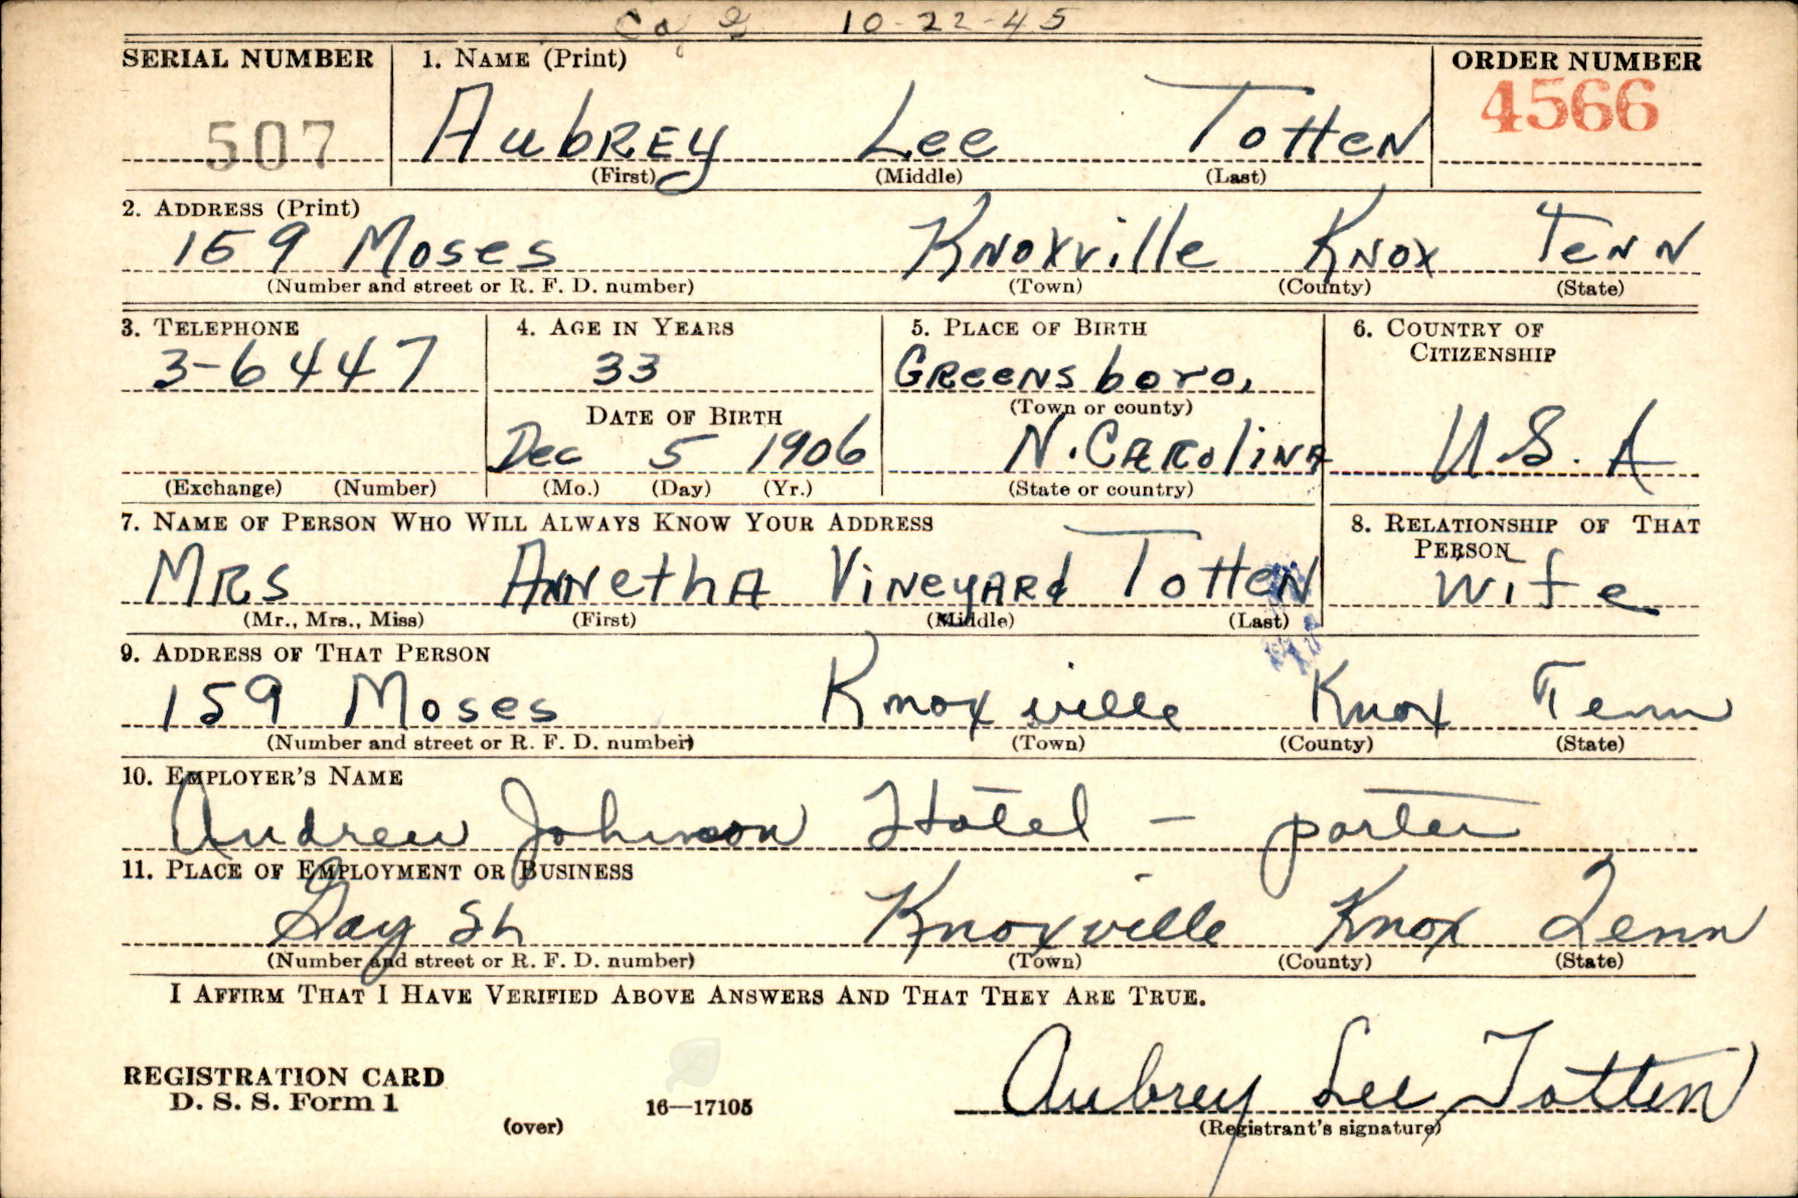 10-22-45
SERIAL NUMBER 1. NAME (Print) ORDER NUMBER
507 AubREy Lee TotteN 4566
(First) (Middle) (Last)
2. ADDRESS (Print)
159 Moses KNoxville KNox TeNN
(Number and street or R. F. D. number) (Town) (County) (State)
3. TELEPHONE 4. AGE IN YEARS 5. PLACE OF BIRTH 6. COUNTRY OF CITIZENSHIP
3-6447 33 GReeNsboro,
DATE OF BIRTH (Town or county)
Dec 5 1906 N. CARoliNA U.S.A
(Exchange) (Number) (Mo.) (Day) (Yr.) (State or country)
7. NAME OF PERSON WHO WILL ALWAYS KNOW YOUR ADDRESS 8. RELATIONSHIP OF THAT PERSON
MRS ANNethA ViNeyARd TotteN Wife
(Mr., Mrs., Miss) (First) (Middle) (Last)
9. ADDRESS OF THAT PERSON
159 Moses Knoxville Knox Tenn
(Number and street or R. F. D. number) (Town) (County) (State)
10. EMPLOYER'S NAME
Andrew Johnson Hotel - porter
11. PLACE OF EMPLOYMENT OR BUSINESS
Gay St Knoxville Knox Tenn
(Number and street or R. F. D. number) (Town) (County) (State)
I AFFIRM THAT I HAVE VERIFIED ABOVE ANSWERS AND THAT THEY ARE TRUE.
REGISTRATION CARD
D. S. S. Form 1
(over) 16—17105
Aubrey Lee Totten
(Registrant's signature)